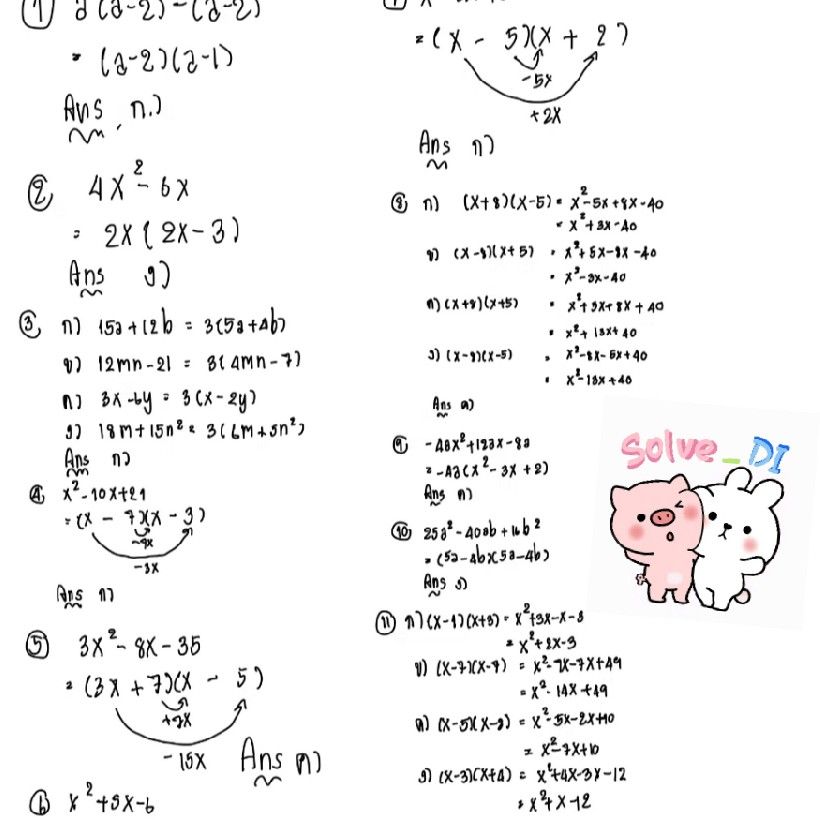 ① a(a-2)-(a-2)
= (a-2)(a-1)
Ans ก.)
② 4x²-6x
= 2x(2x-3)
Ans ง)
③ ก) 15a+12b = 3(5a+4b)
ข) 12mn-21 = 3(4mn-7)
ค) 3x-6y = 3(x-2y)
ง) 18m+15n² = 3(6m+5n²)
Ans ก)
④ x²-10x+21
= (x - 7)(x - 3)
-7x
-3x
Ans ก)
⑤ 3x²-8x-35
= (3x + 7)(x - 5)
+7x
-15x
Ans ค)
⑥ x²+5x-6
= (x - 5)(x + 2)
-5x
+2x
Ans ก)
⑧ ก) (x+8)(x-5) = x²-5x+8x-40
= x²+3x-40
ข) (x-8)(x+5) = x²+5x-8x-40
= x²-3x-40
ค) (x+8)(x+5) = x²+5x+8x+40
= x²+13x+40
ง) (x-8)(x-5) = x²-8x-5x+40
= x²-13x+40
Ans ค)
⑨ -4ax²+12ax-8a
= -4a(x²-3x+2)
Ans ค)
⑩ 25a²-40ab+16b²
= (5a-4b)(5a-4b)
Ans ง)
Solve_DI
⑪ ก) (x-1)(x+3) = x²+3x-x-3
= x²+2x-3
ข) (x-7)(x-7) = x²-7x-7x+49
= x²-14x+49
ค) (x-5)(x-2) = x²-5x-2x+10
= x²-7x+10
ง) (x-3)(x+4) = x²+4x-3x-12
= x²+x-12